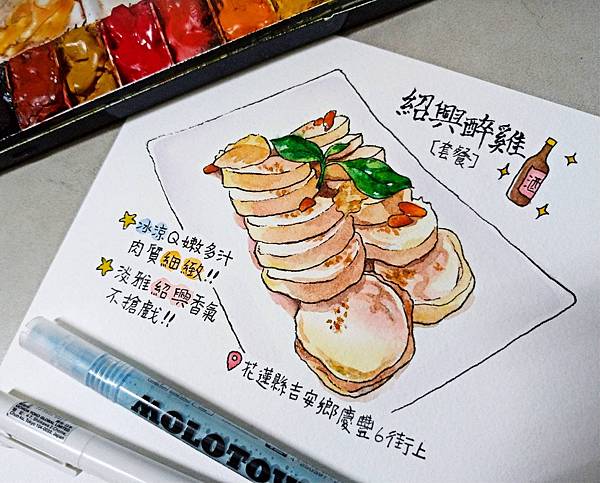 紹興醉雞
[套餐]
酒
冰涼Q嫩多汁
肉質細緻!!
淡雅紹興香氣
不搶戲!!
花蓮縣吉安鄉慶豐6街上
MOLOTOW